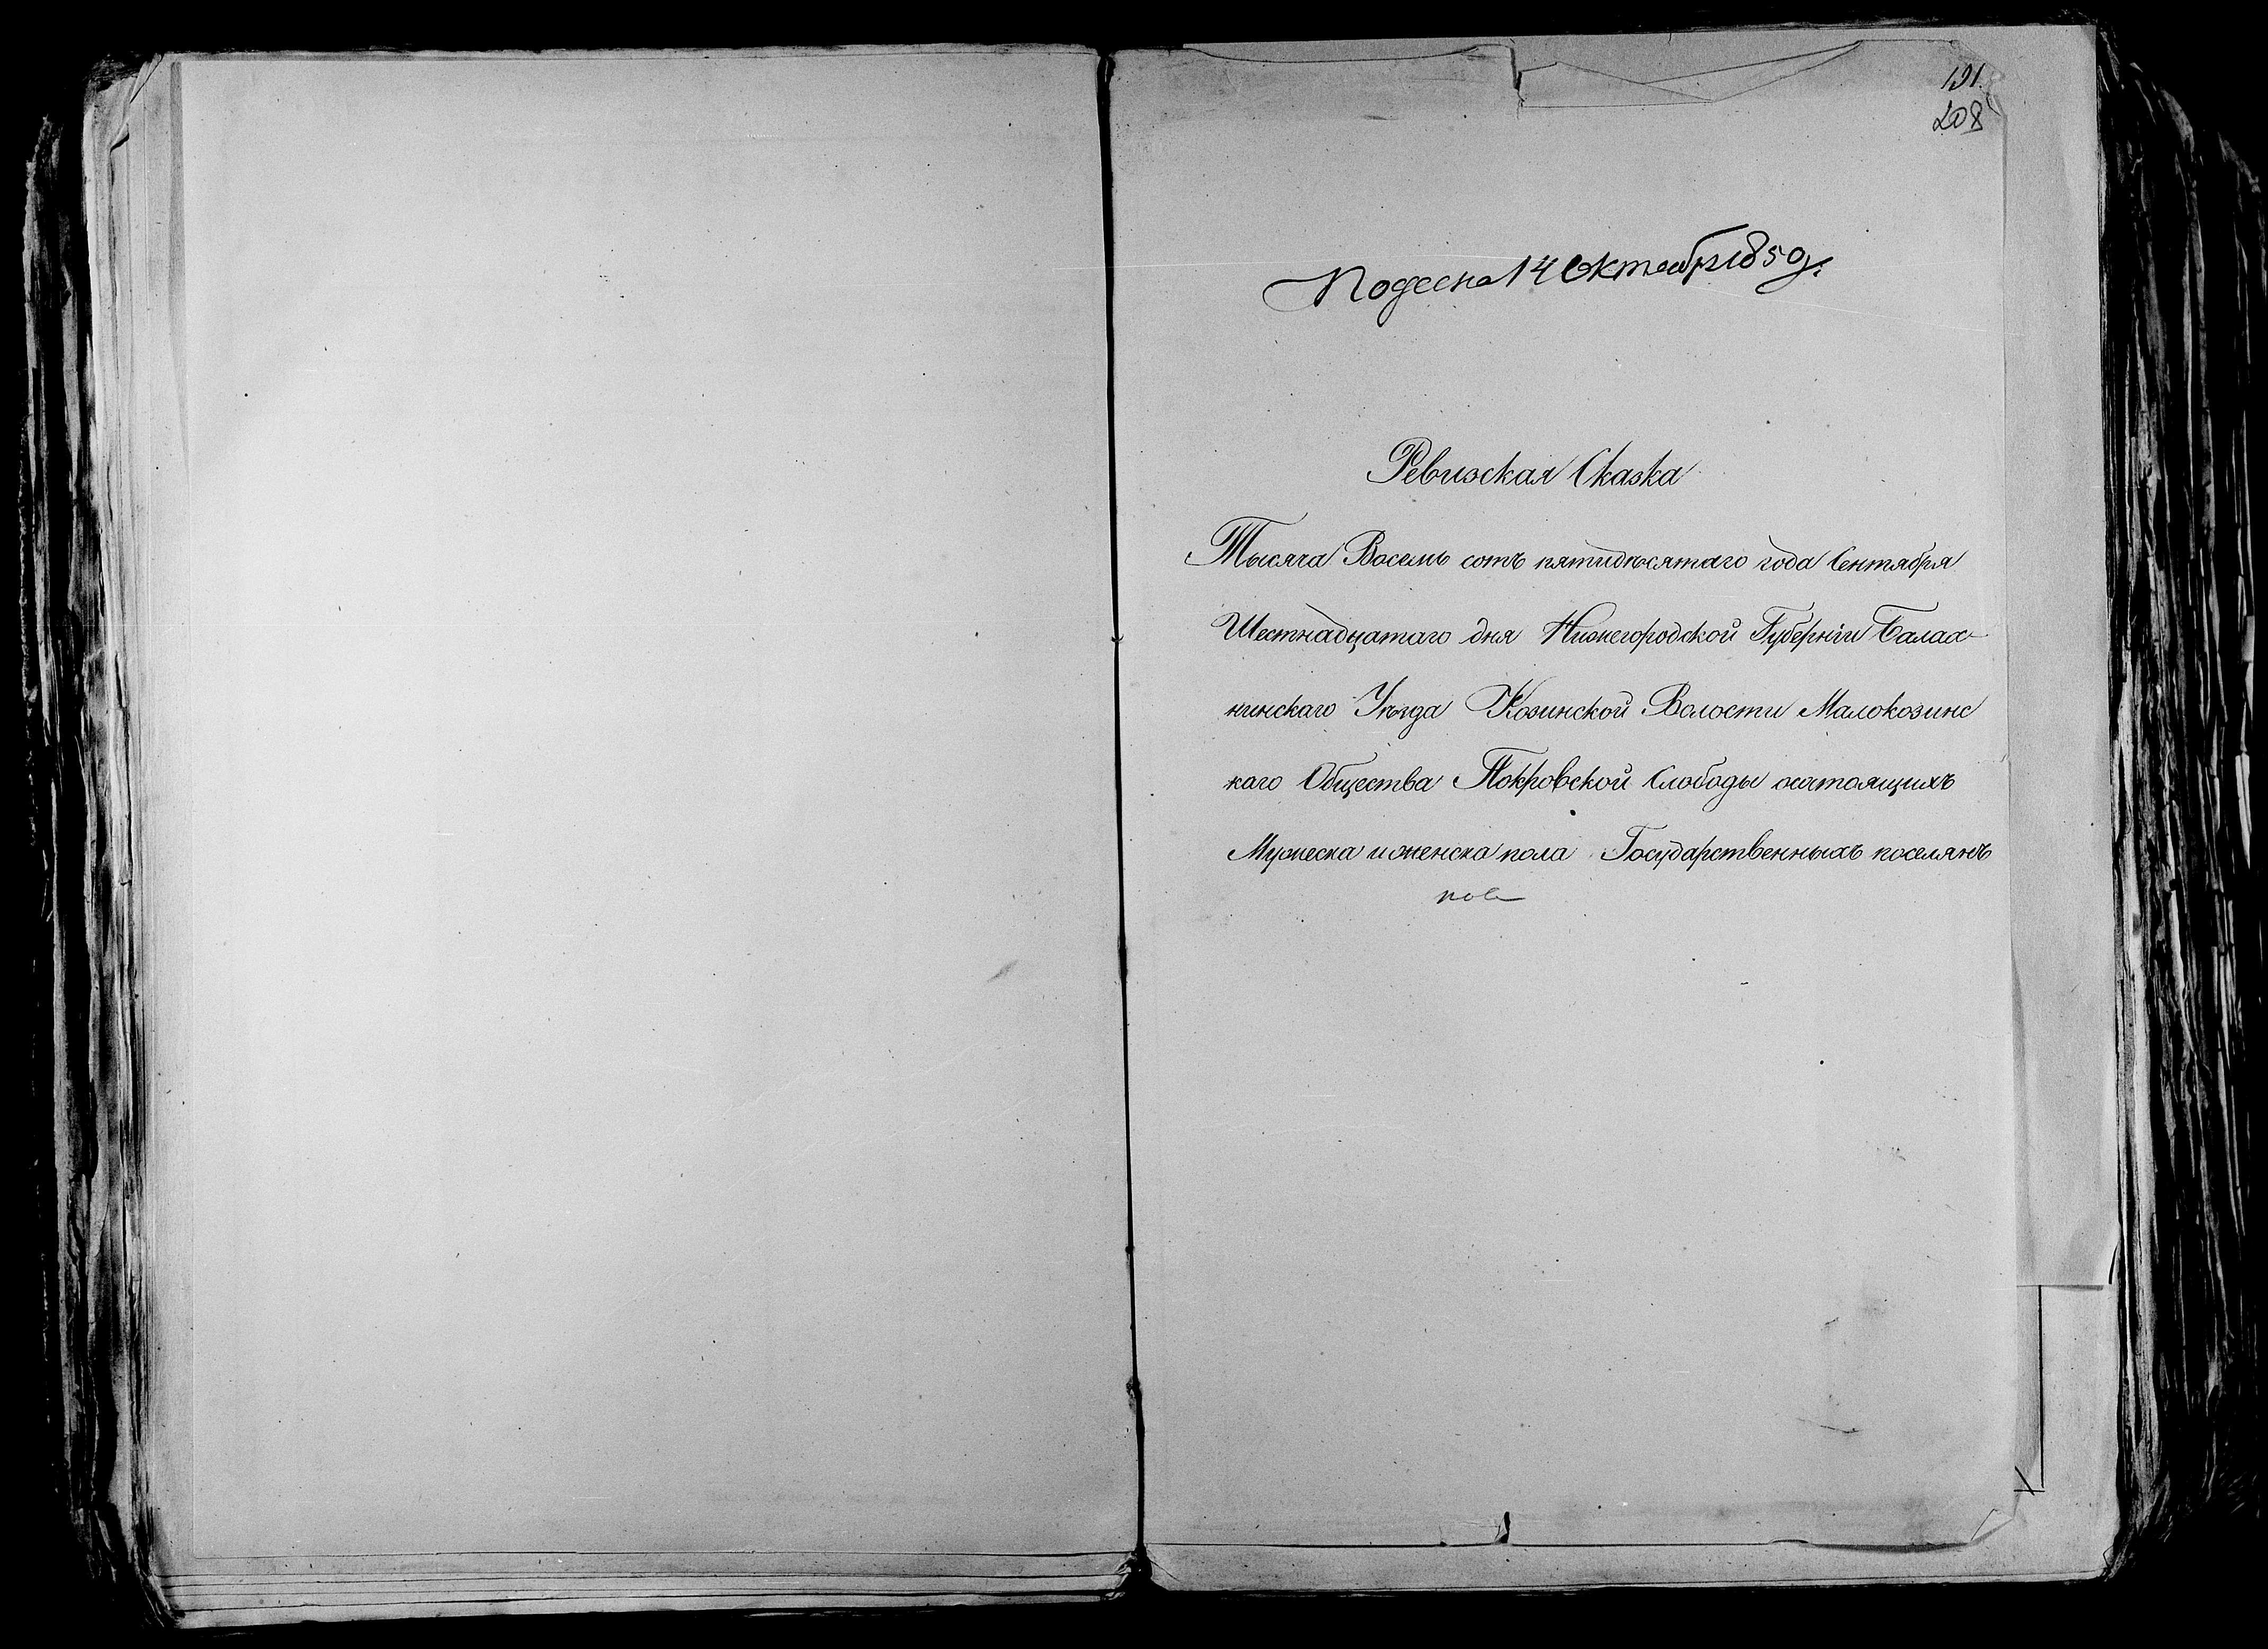 191.
208
Подесна 14 Октябр 1850 г.
Ревизская Сказка
Тысяча Восемь сотъ пятидѣсятаго года Сентября
Шестнадцатаго дня Нижегородской Губернiи Балах-
нинскаго Уѣзда Козинской Волости Малокозинс
каго Общества Покровской Слободы осатоящихъ
Мужеска и женска пола Государственныхъ поселянъ